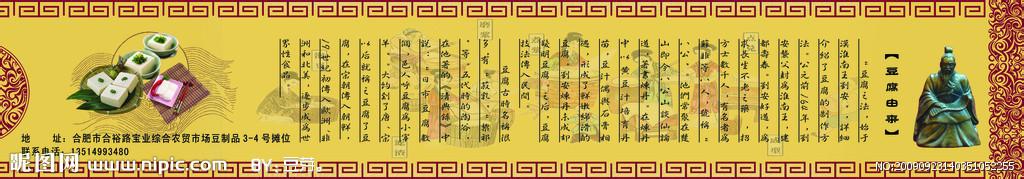 【豆腐由来】
：豆腐之法，始于
汉淮南王刘安"，详细
介绍了豆腐的制作方
法。公元前164年，刘
安袭父封为淮南王，建
都寿春。刘安好道，为
求长生不老之药，招
方士数千人，有名者为
苏非等八人，号称"
八公"。他们常聚在楚
山即今八公山谈仙论
道，著书炼丹。在炼丹
中以黄豆汁培育丹
苗，豆汁偶与石膏相
遇，形成了鲜嫩绵滑的
豆腐。刘安炼丹未成却
发明豆腐。之后，豆腐
技法传入民间。
豆腐古时名称颇
多，有"菽乳"、"黎祁
"等。五代时的陶谷，
在他著的《清异录》中
说："日市豆腐数
个，邑人呼豆腐为小宰
羊"。大约到了唐宋
以后就称之豆腐了。豆
腐，在宋朝传入朝鲜，
19世纪初传入欧洲、非
洲和北美，逐步成为世
界性食品。
地 址：合肥市合裕路宝业综合农贸市场豆制品3-4号摊位
联系电话：13514993480
昵图网 www.nipic.com BY：豆芽。